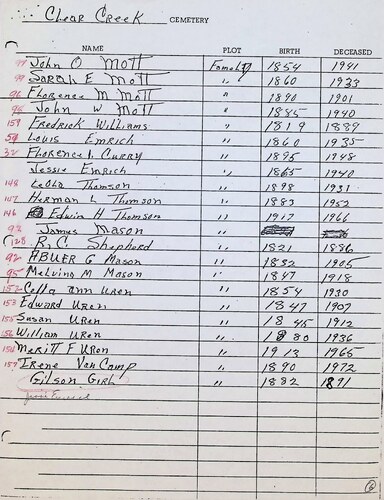 Clear Creek CEMETERY
NAME PLOT BIRTH DECEASED
99 John O Mott Family 1854 1941
99 Sarah E Mott " 1860 1933
96 Florence M Mott " 1890 1901
95 John W Mott " 1885 1940
159 Fredrick Williams " 1819 1889
54 Louis Emrich " 1860 1935
32 Florence I. Curry " 1895 1948
Jessie Emrich " 1865 1940
148 Leola Thomson " 1898 1931
147 Herman L Thomson " 1883 1952
146 Edwin H Thomson " 1917 1966
93 James Mason "
128 R. C. Shepherd " 1821 1886
92 ABUER G Mason " 1832 1905
95 Melvina M Mason " 1847 1918
152 Cella ann Uren " 1854 1930
153 Edward Uren " 1847 1907
155 Susan Uren " 1845 1912
156 William Uren " 1880 1936
154 Meritt F Uren " 1913 1965
157 Irene Van Camp " 1890 1972
Gilson Girl " 1882 1891
6